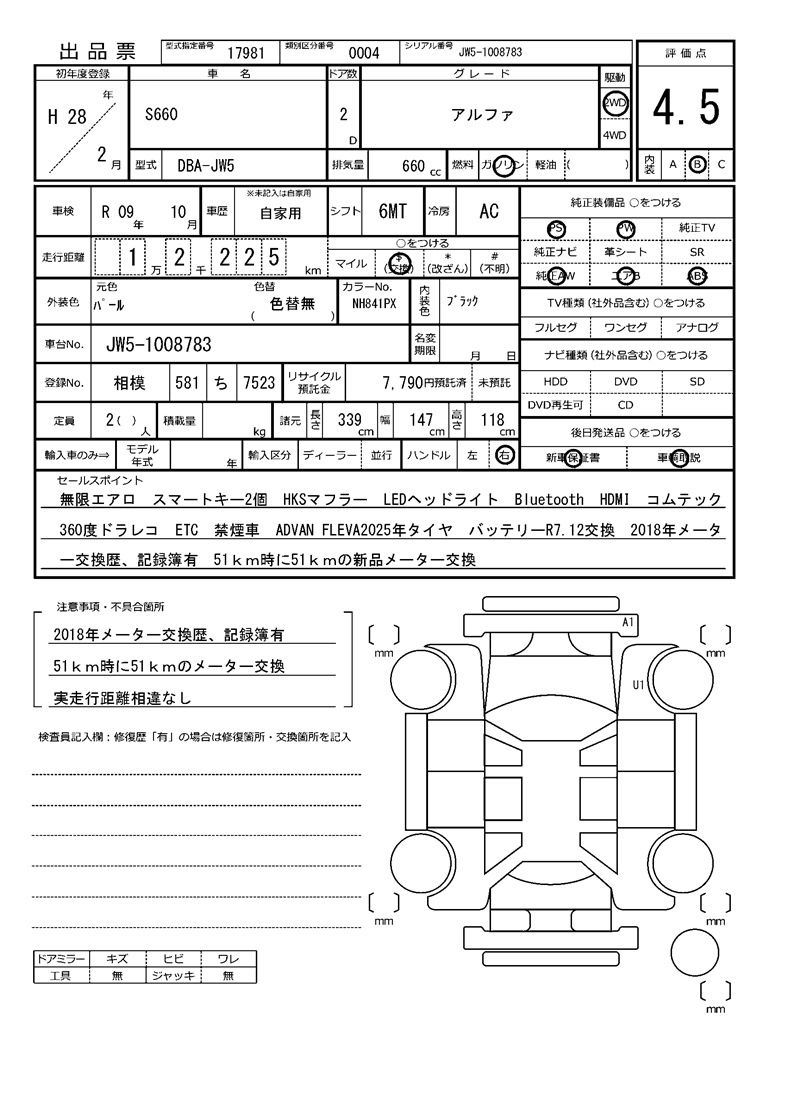 出品票 型式指定番号 17981 類別区分番号 0004 シリアル番号 JW5-1008783 評価点
初年度登録 車名 ドア数 グレード 駆動
H 28 年 2 月 S660 2 D アルファ 2WD 4WD 4.5
型式 DBA-JW5 排気量 660 cc 燃料 ガソリン 軽油 ( ) 内装 A B C
車検 R 09 年 10 月 車歴 ※未記入は自家用 自家用 シフト 6MT 冷房 AC 純正装備品 ○をつける
PS PW 純正TV
走行距離 1 万 2 千 2 2 5 km ○をつける
マイル $ (交換) * (改ざん) # (不明)
純正ナビ 革シート SR
純正AW エアB ABS
外装色 元色 パール 色替 色替無 ( ) カラーNo. NH841PX 内装色 ブラック
TV種類(社外品含む)○をつける
フルセグ ワンセグ アナログ
車台No. JW5-1008783 名変期限 月 日
ナビ種類(社外品含む)○をつける
登録No. 相模 581 ち 7523 リサイクル預託金 7,790円預託済 未預託
HDD DVD SD
DVD再生可 CD
定員 2( ) 人 積載量 kg 諸元 長さ 339 cm 幅 147 cm 高さ 118 cm
後日発送品 ○をつける
輸入車のみ⇒ モデル年式 年 輸入区分 ディーラー 並行 ハンドル 左 右
新車保証書 車輌取説
セールスポイント
無限エアロ スマートキー2個 HKSマフラー LEDヘッドライト Bluetooth HDMI コムテック
360度ドラレコ ETC 禁煙車 ADVAN FLEVA2025年タイヤ バッテリーR7.12交換 2018年メータ
ー交換歴、記録簿有 51ｋｍ時に51ｋｍの新品メーター交換
注意事項・不具合箇所
2018年メーター交換歴、記録簿有
51ｋｍ時に51ｋｍのメーター交換
実走行距離相違なし
A1
mm mm
U1
検査員記入欄：修復歴「有」の場合は修復箇所・交換箇所を記入
mm mm
ドアミラー キズ ヒビ ワレ
工具 無 ジャッキ 無
mm